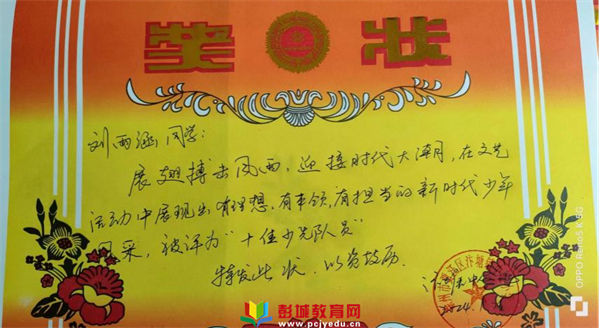 奖状
刘雨涵同学:
展翅搏击风雨,迎接时代大潮,在文艺
活动中展现出有理想,有本领,有担当的新时代少年
风采,被评为“十佳少先队员”
特发此状,以资鼓励.
彭城教育网
www.pcjyedu.cn
OPPO Reno5 K 5G